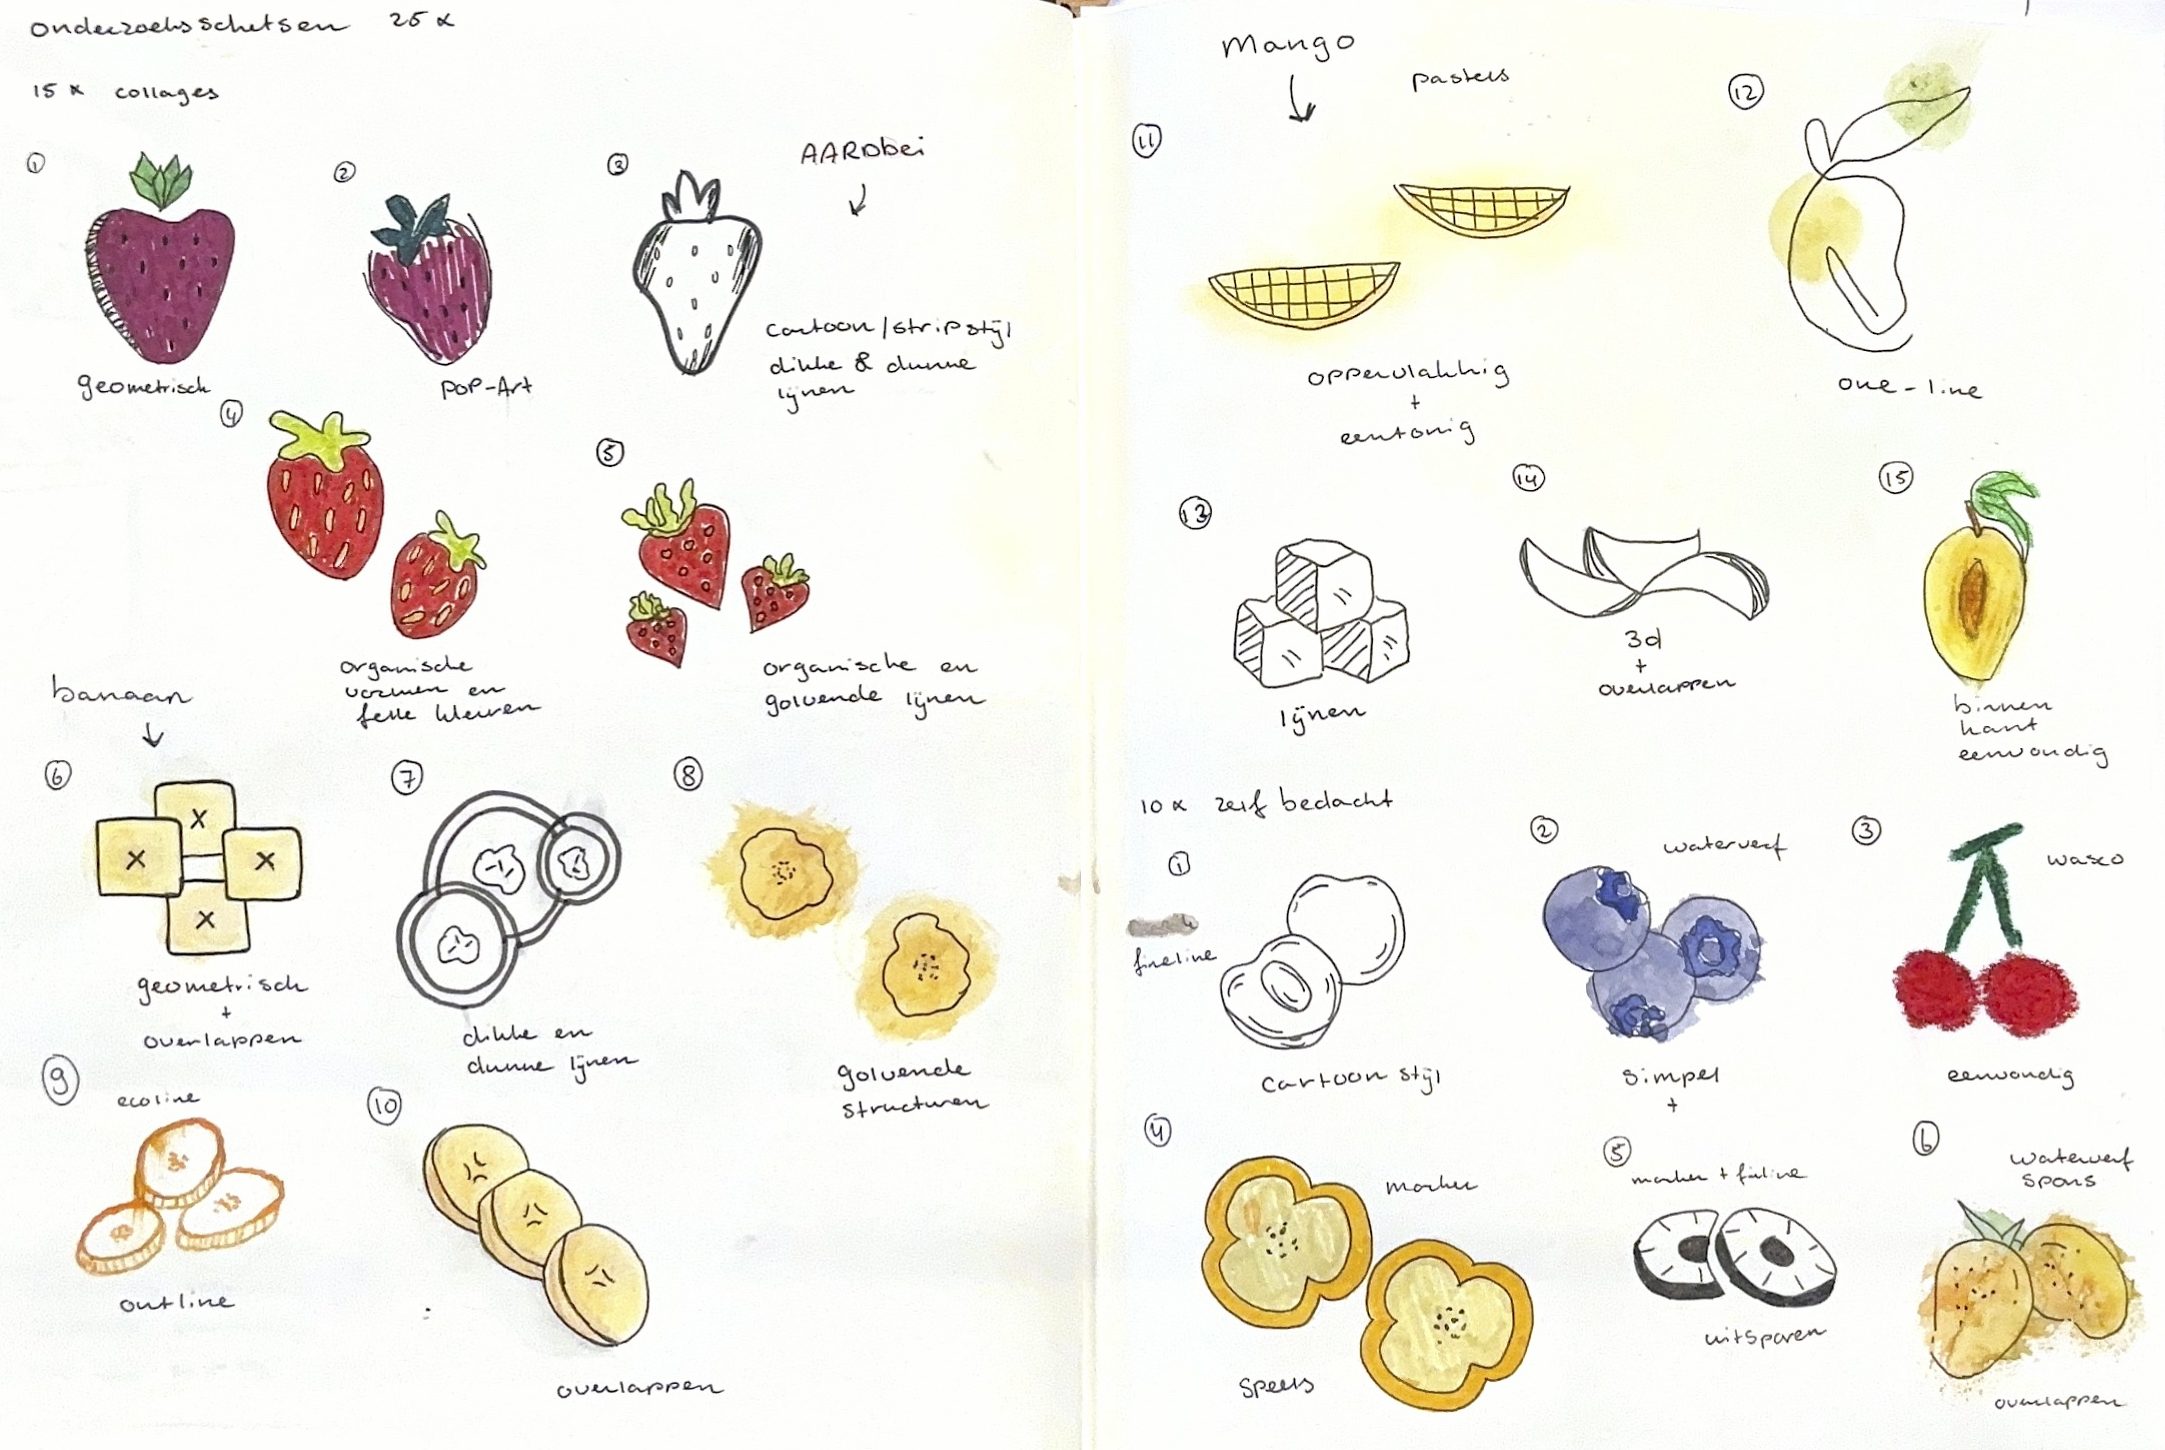 onderzoeksschetsen 25 x
15 x collages
1
geometrisch
2
POP-Art
3
AARDbei
cartoon/stripstijl
dikke & dunne
lijnen
4
organische
vormen en
felle kleuren
5
organische en
golvende lijnen
banaan
6
geometrisch
+
overlappen
7
dikke en
dunne lijnen
8
golvende
structuren
9
ecoline
outline
10
overlappen
Mango
pastels
11
oppervlakkig
+
eentonig
12
one-line
13
lijnen
14
3d
+
overlappen
15
binnen
kant
eenvoudig
10 x zelf bedacht
1
fineline
cartoon stijl
2
waterverf
simpel
+
3
wasco
eenvoudig
4
marker
speels
5
marker + fineline
uitsparen
6
waterverf
spons
overlappen